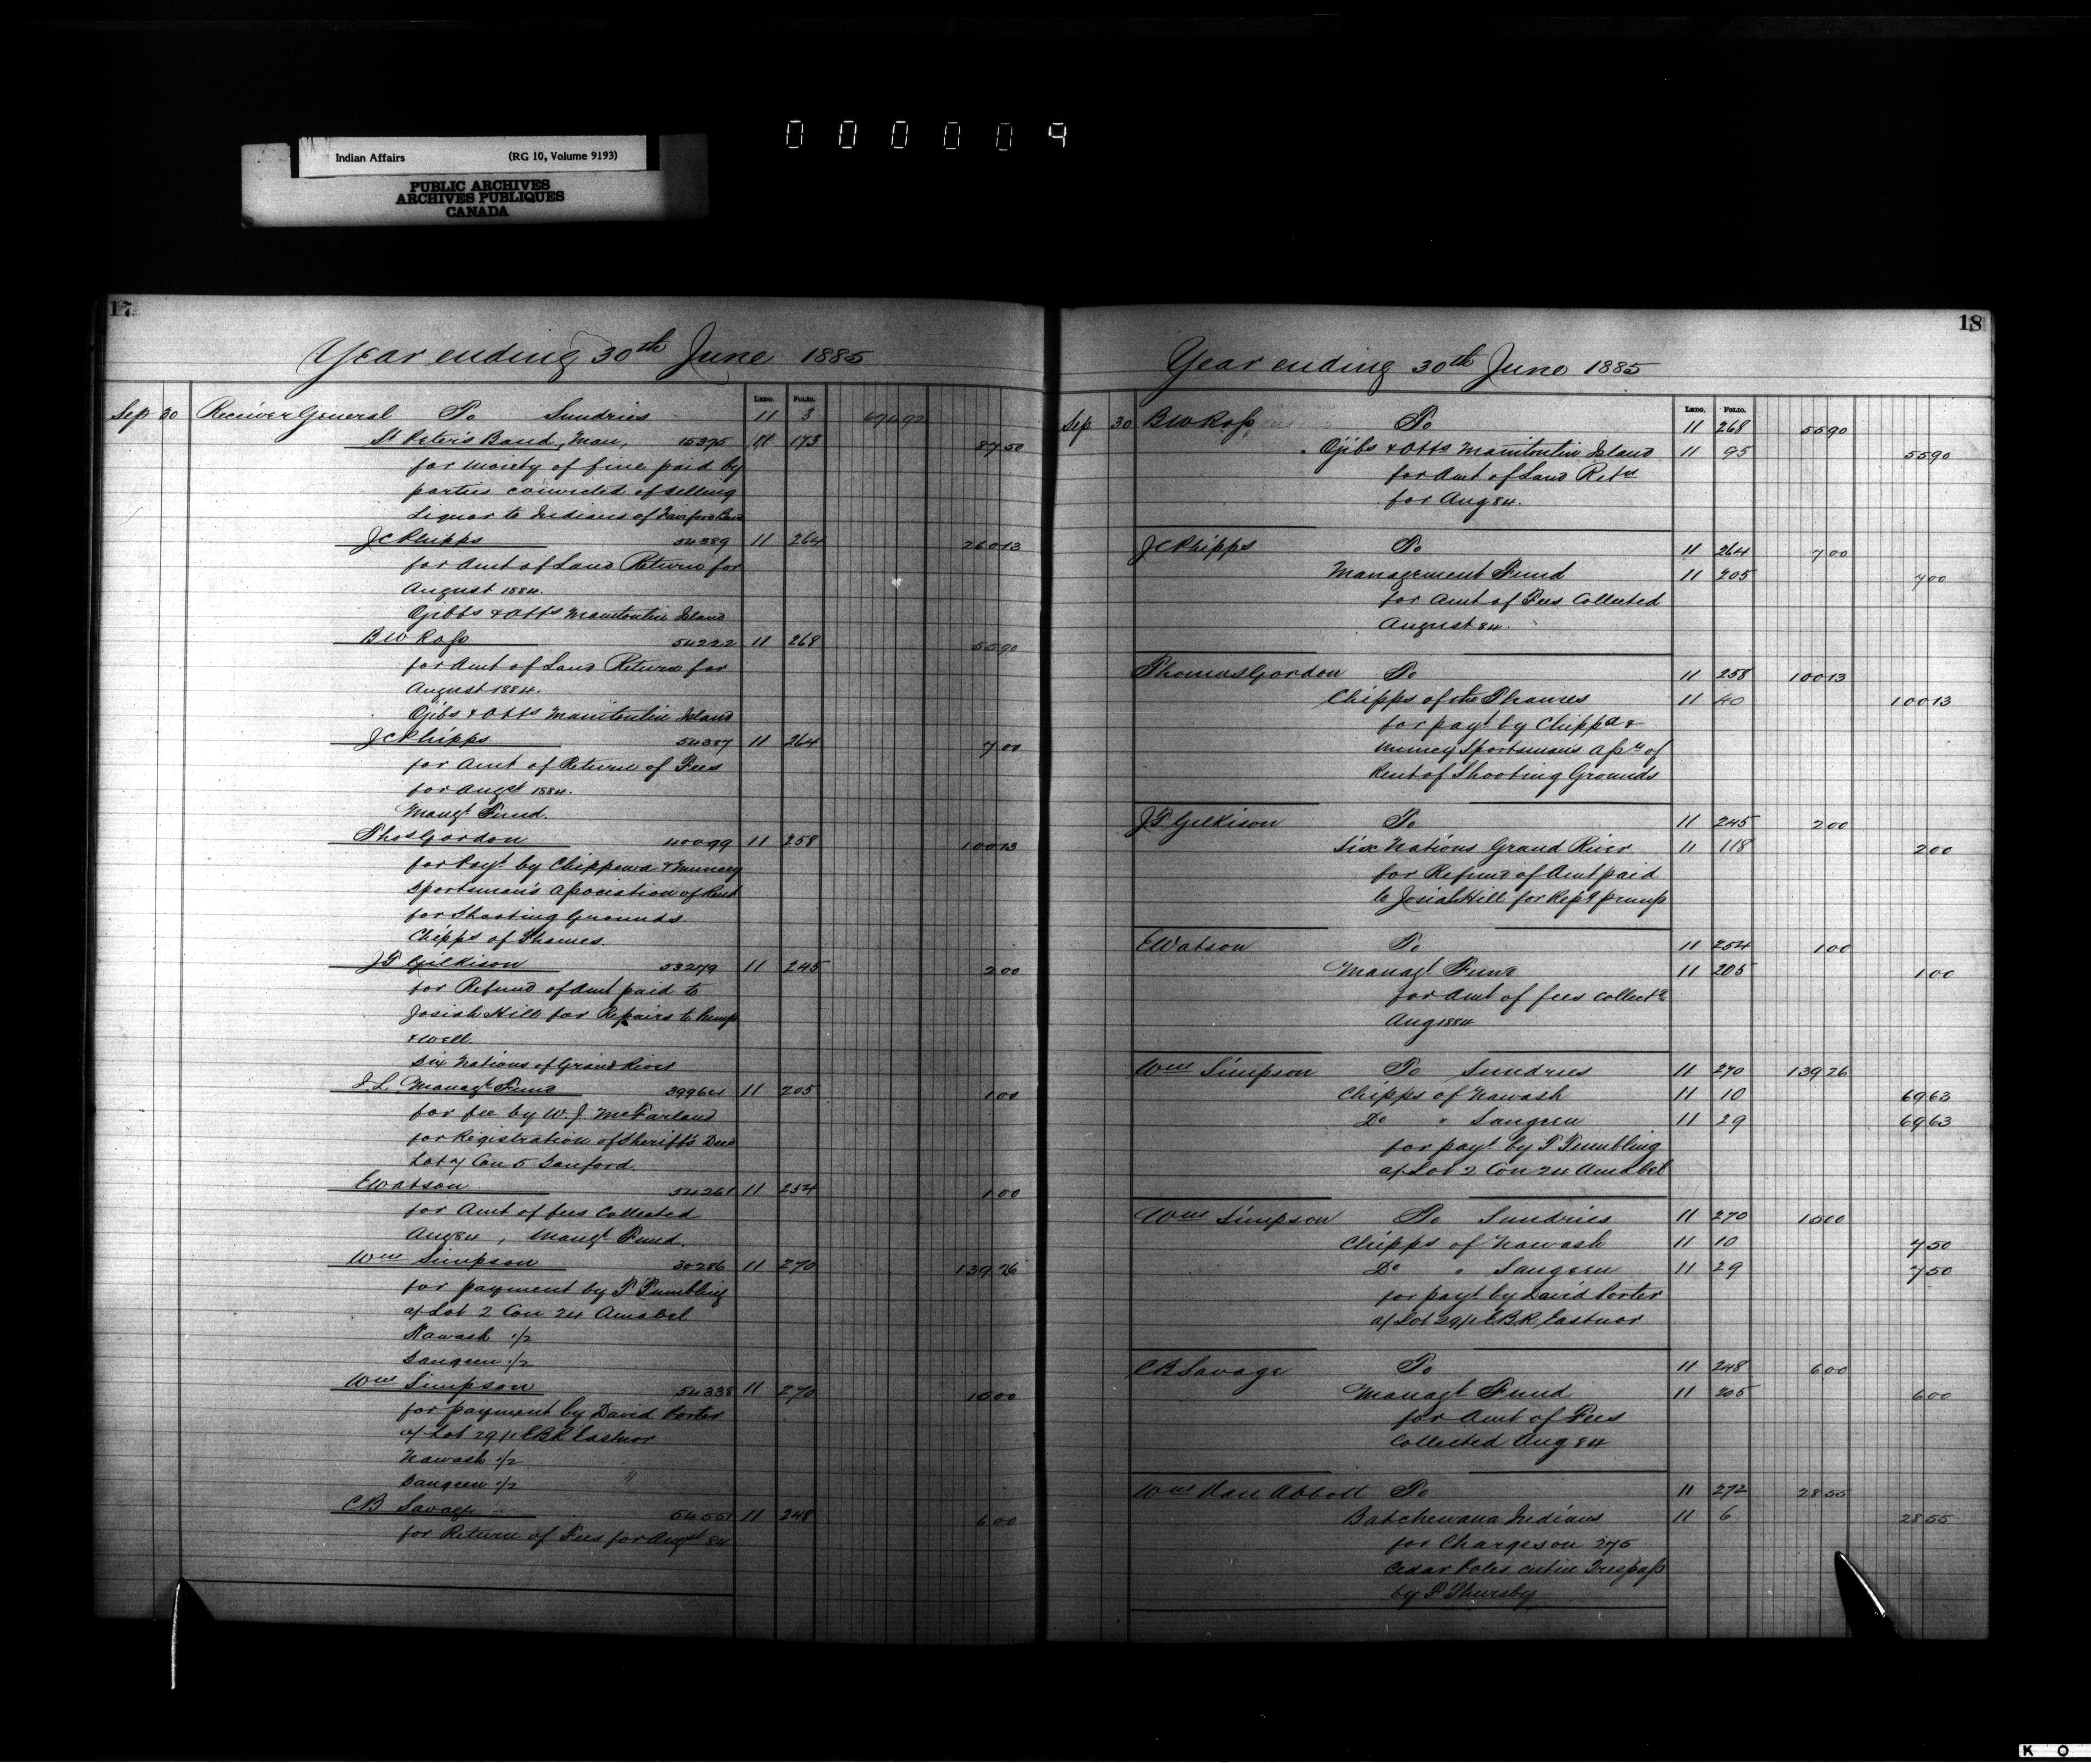 000009
Indian Affairs (RG 10, Volume 9193)
PUBLIC ARCHIVES
ARCHIVES PUBLIQUES
CANADA
17
Year ending 30th June 1885
Ledg. Folio.
Sep 30 Receiver General To Sundries 11 3 694 92
St Peter's Band, Man, 15375 11 173 87 50
for moiety of fine paid by
parties convicted of selling
Liquor to Indians of
J C Phipps 54389 11 264 260 13
for Amt of Land Return for
August 1884.
Ojibbs & Otts Manitoulin Island
B W Ross 54222 11 268 55 90
for Amt of Land Return for
August 1884.
Ojibs & Otts Manitoulin Island
J C Phipps 54387 11 264 7 00
for Amt of Return of Fees
for Augst 1884.
Mangt Fund.
Thos Gordon 40099 11 258 100 13
for Payt by Chippewa & Muncey
Sportsman's Association of Rent
for Shooting Grounds.
Chipps of Thames.
J T Gilkison 53279 11 245 2 00
for Refund of Amt paid to
Josiah Hill for Repairs to Pump
& Well.
Six Nations of Grand River
I. L. Managt Fund 39964 11 205 1 00
for fee by W. J. McFarland
for Registration of Sheriff's Deed
Lot 7 Con 5 Sanford.
E Watson 54261 11 254 1 00
for Amt of fees Collected
Aug 84, Mangt Fund.
Wm Simpson 30286 11 270 139 26
for payment by T Tumbling
a/ Lot 2 Con 24 Amabel
Nawash 1/2
Saugeen 1/2
Wm Simpson 54338 11 270 15 00
for payment by David Porter
a/ Lot 29/1 EBR Eastnor
Nawash 1/2
Saugeen 1/2
C B Savage 54551 11 248 6 00
for Return of Fees for Augst 84
18
Year ending 30th June 1885
Ledg. Folio.
Sep 30 B W Ross To 11 268 55 90
Ojibs & Otts Manitoulin Island 11 95 55 90
for Amt of Land Retn
for Aug 84.
J C Phipps To 11 264 7 00
Management Fund 11 205 7 00
for Amt of Fees Collected
August 84.
Thomas Gordon To 11 258 100 13
Chipps of the Thames 11 40 100 13
for payt by Chippa &
Muncey Sportsman's Assn of
Rent of Shooting Grounds
J T Gilkison To 11 245 2 00
Six Nations Grand River 11 118 2 00
for Refund of Amt paid
to Josiah Hill for Repg pump
E Watson To 11 254 1 00
Managt Fund 11 205 1 00
for Amt of fees collectd
Aug 1884
Wm Simpson To Sundries 11 270 139 26
Chipps of Nawash 11 10 69 63
Do " Saugeen 11 29 69 63
for payt by T Tumbling
a/ Lot 2 Con 24 Amabel
Wm Simpson To Sundries 11 270 15 00
Chipps of Nawash 11 10 7 50
Do " Saugeen 11 29 7 50
for payt by David Porter
a/ Lot 29/1 EBR, Eastnor
C B Savage To 11 248 6 00
Managt Fund 11 205 6 00
for Amt of Fees
Collected Aug 84
Wm Van Abbott To 11 272 28 55
Batchewana Indians 11 6 28 55
for Charges on 275
Cedar Poles cut in Trespass
by P Thursby
K O